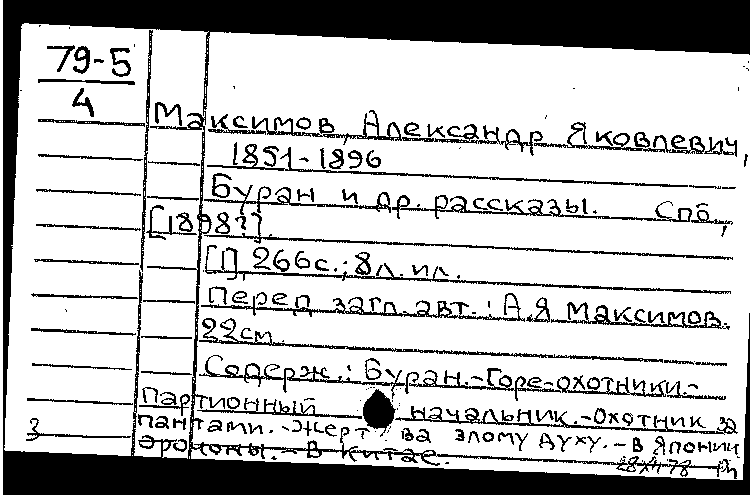 79-5
4
Максимов, Александр Яковлевич,
1851-1896
Буран и др. рассказы. Спб.,
[1898?].
[1], 266с.; 8л. ил.
Перед загл. авт.: А.Я Максимов.
22см.
Содерж.: Буран.-Горе-охотники.-
Партионный начальник.-Охотник за
пантами.-Жертва злому духу.-В Японии
В Китае.
3